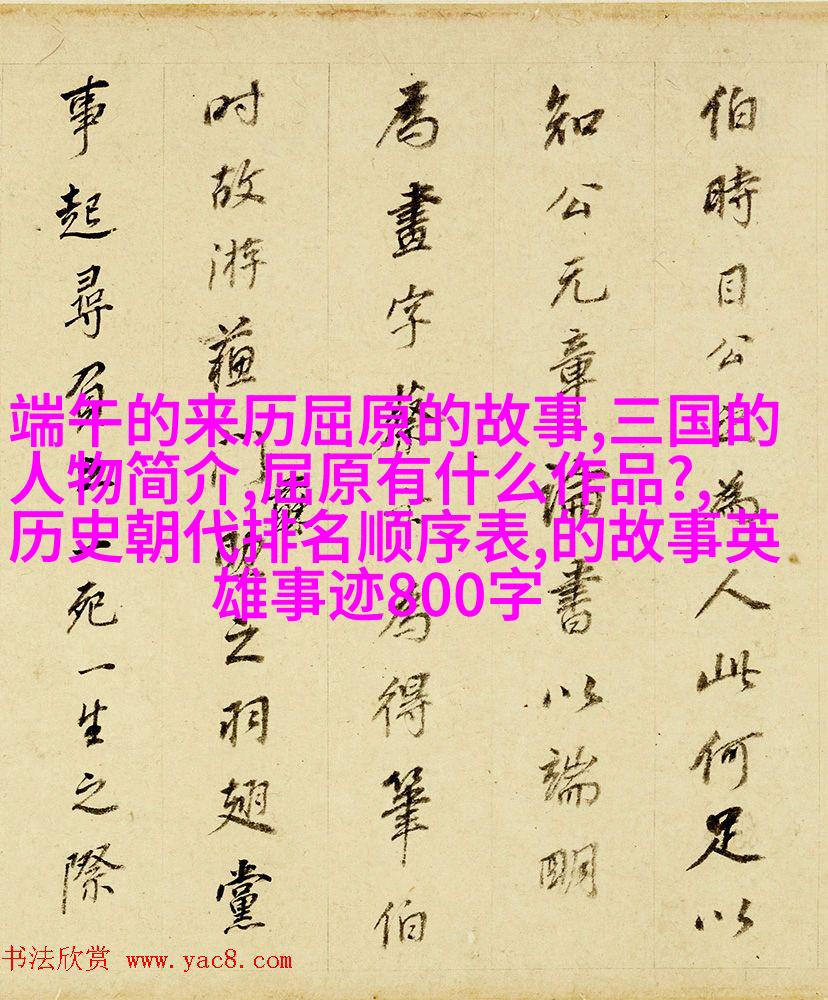 伯時目公為人此何足以
知公元章論書以端明
為畫字蔡為得筆伯
时故游蘓門之羽翅黨
事起尋死一生之際
端午的来历屈原的故事,三国的
人物简介,屈原有什么作品?,
历史朝代排名顺序表,的故事英
雄事迹800字
书法欣赏 www.yac8.com